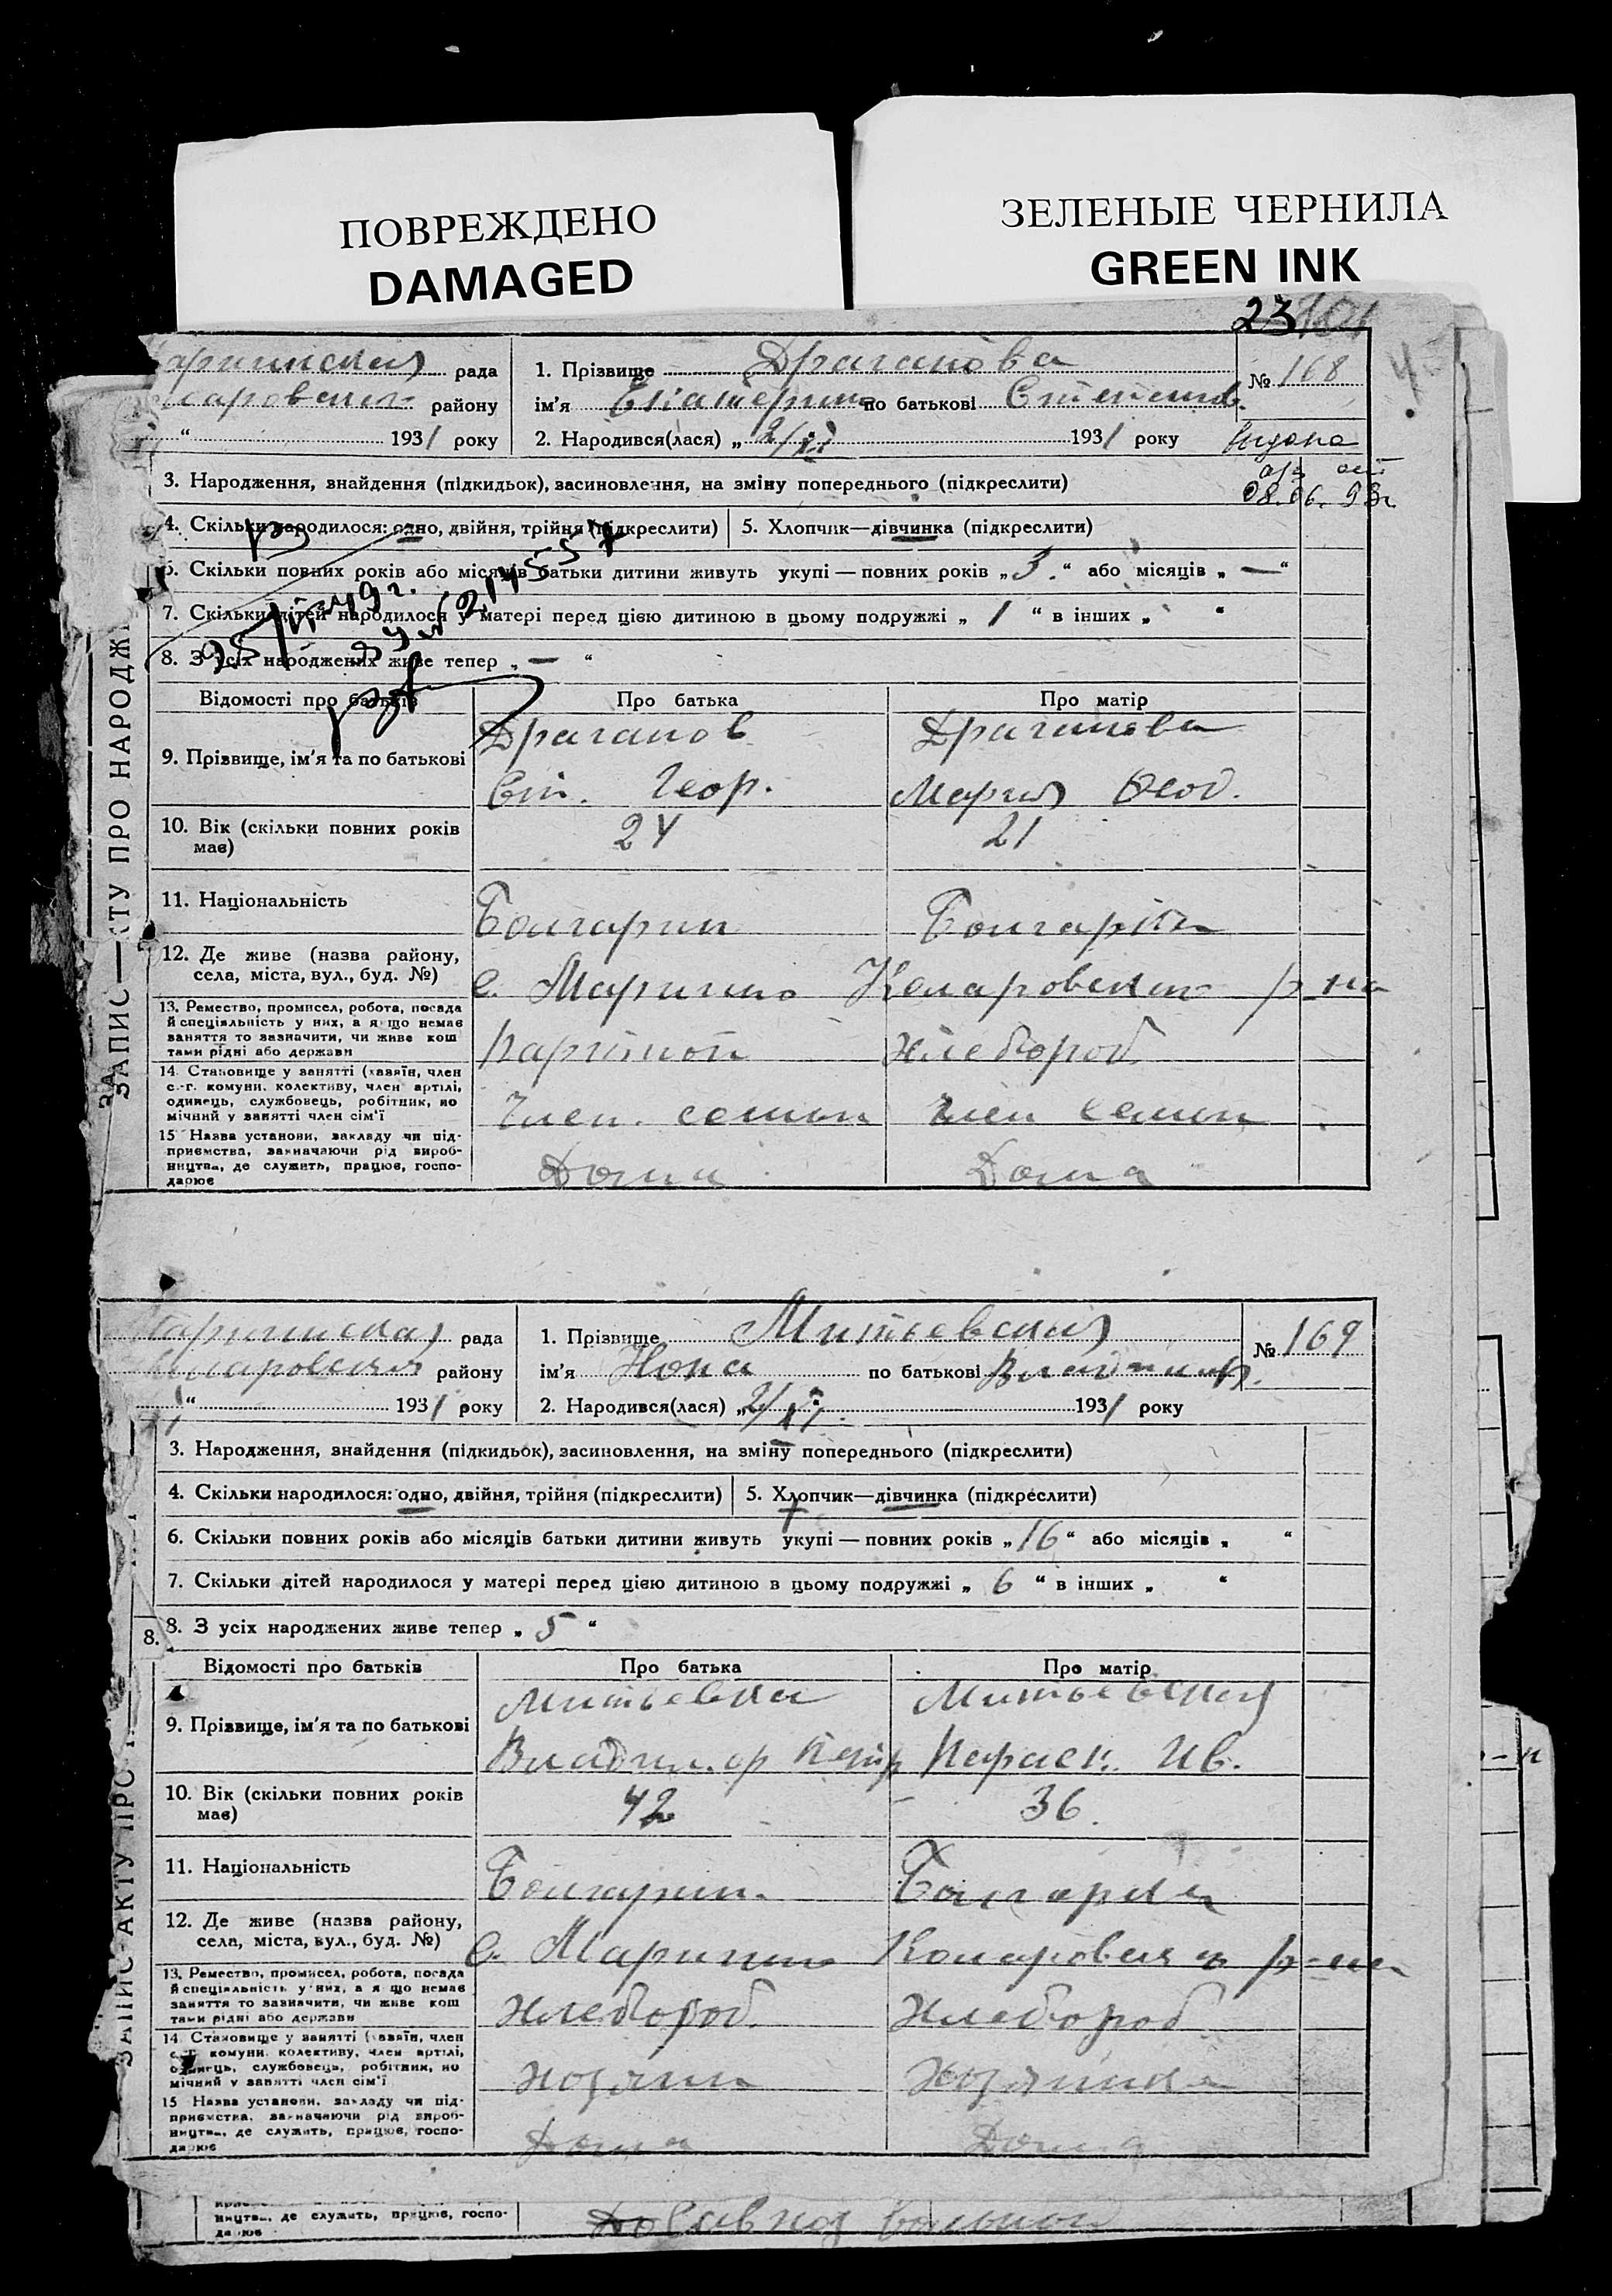 ПОВРЕЖДЕНО
DAMAGED
ЗЕЛЕНЫЕ ЧЕРНИЛА
GREEN INK
23
рада
1. Прізвище Драганова
№ 168
району
ім'я Екатерина по батькові Степанов.
“ 1931 року
2. Народився(лася) „ 2/ 1931 року
08.06.93г.
3. Народження, знайдення (підкидьок), засиновлення, на зміну попереднього (підкреслити)
4. Скільки народилося: одно, двійня, трійня (підкреслити)
5. Хлопчик—дівчинка (підкреслити)
6. Скільки повних років або місяців батьки дитини живуть укупі — повних років „ 3. “ або місяців „ — “
7. Скільки дітей народилося у матері перед цією дитиною в цьому подружжі „ 1 “ в інших „ “
8. З усіх народжених живе тепер „ — “
Відомості про батьків
Про батька
Про матір
9. Прізвище, ім'я та по батькові
Драганов
Драганова
Ст. Геор.
Мария Феод.
10. Вік (скільки повних років має)
24
21
11. Національність
Болгарин
Болгарка
12. Де живе (назва району,
села, міста, вул., буд. №)
с. Марино Коларовского р-на
13. Ремество, промисел, робота, посада
й спеціяльність у них, а якщо немає
заняття то зазначити, чи живе кош
тами рідні або держави
хлебороб
14. Становище у занятті (хазяїн, член
с.-г. комуни, колективу, член артілі,
одинець, службовець, робітник, по
мічний у занятті член сім'ї
Член. семьи
Член семьи
15 Назва установи, закладу чи під-
приємства, зазначаючи рід вироб-
ництва, де служить, працює, госпо-
дарює
Дома
Дома
ЗАПИС—АКТУ ПРО НАРОДЖ
рада
1. Прізвище Митьевская
№ 169
району
ім'я Нона по батькові Владимир.
“ 1931 року
2. Народився(лася) „ 2/ 1931 року
3. Народження, знайдення (підкидьок), засиновлення, на зміну попереднього (підкреслити)
4. Скільки народилося: одно, двійня, трійня (підкреслити)
5. Хлопчик—дівчинка (підкреслити)
6. Скільки повних років або місяців батьки дитини живуть укупі — повних років „ 16 “ або місяців „ “
7. Скільки дітей народилося у матері перед цією дитиною в цьому подружжі „ 6 “ в інших „ “
8. 8. З усіх народжених живе тепер „ 5 “
Відомості про батьків
Про батька
Про матір
9. Прізвище, ім'я та по батькові
Митьевская
Владимир Петр
Параск. Ив.
10. Вік (скільки повних років має)
42
36
11. Національність
Болгарин.
Болгарка
12. Де живе (назва району,
села, міста, вул., буд. №)
с. Марино Коларовского р-на
13. Ремество, промисел, робота, посада
й спеціяльність у них, а якщо немає
заняття то зазначити, чи живе кош
тами рідні або держави
хлебороб.
хлебороб
14. Становище у занятті (хазяїн, член
с.-г. комуни, колективу, член артілі,
одинець, службовець, робітник, по
мічний у занятті член сім'ї
хозяин
хозяйка
15 Назва установи, закладу чи під-
приємства, зазначаючи рід вироб-
ництва, де служить, працює, госпо-
дарює
Дома
Дома
ЗАПИС АКТУ ПРО
ництва, де служить, працює, госпо-
дарює